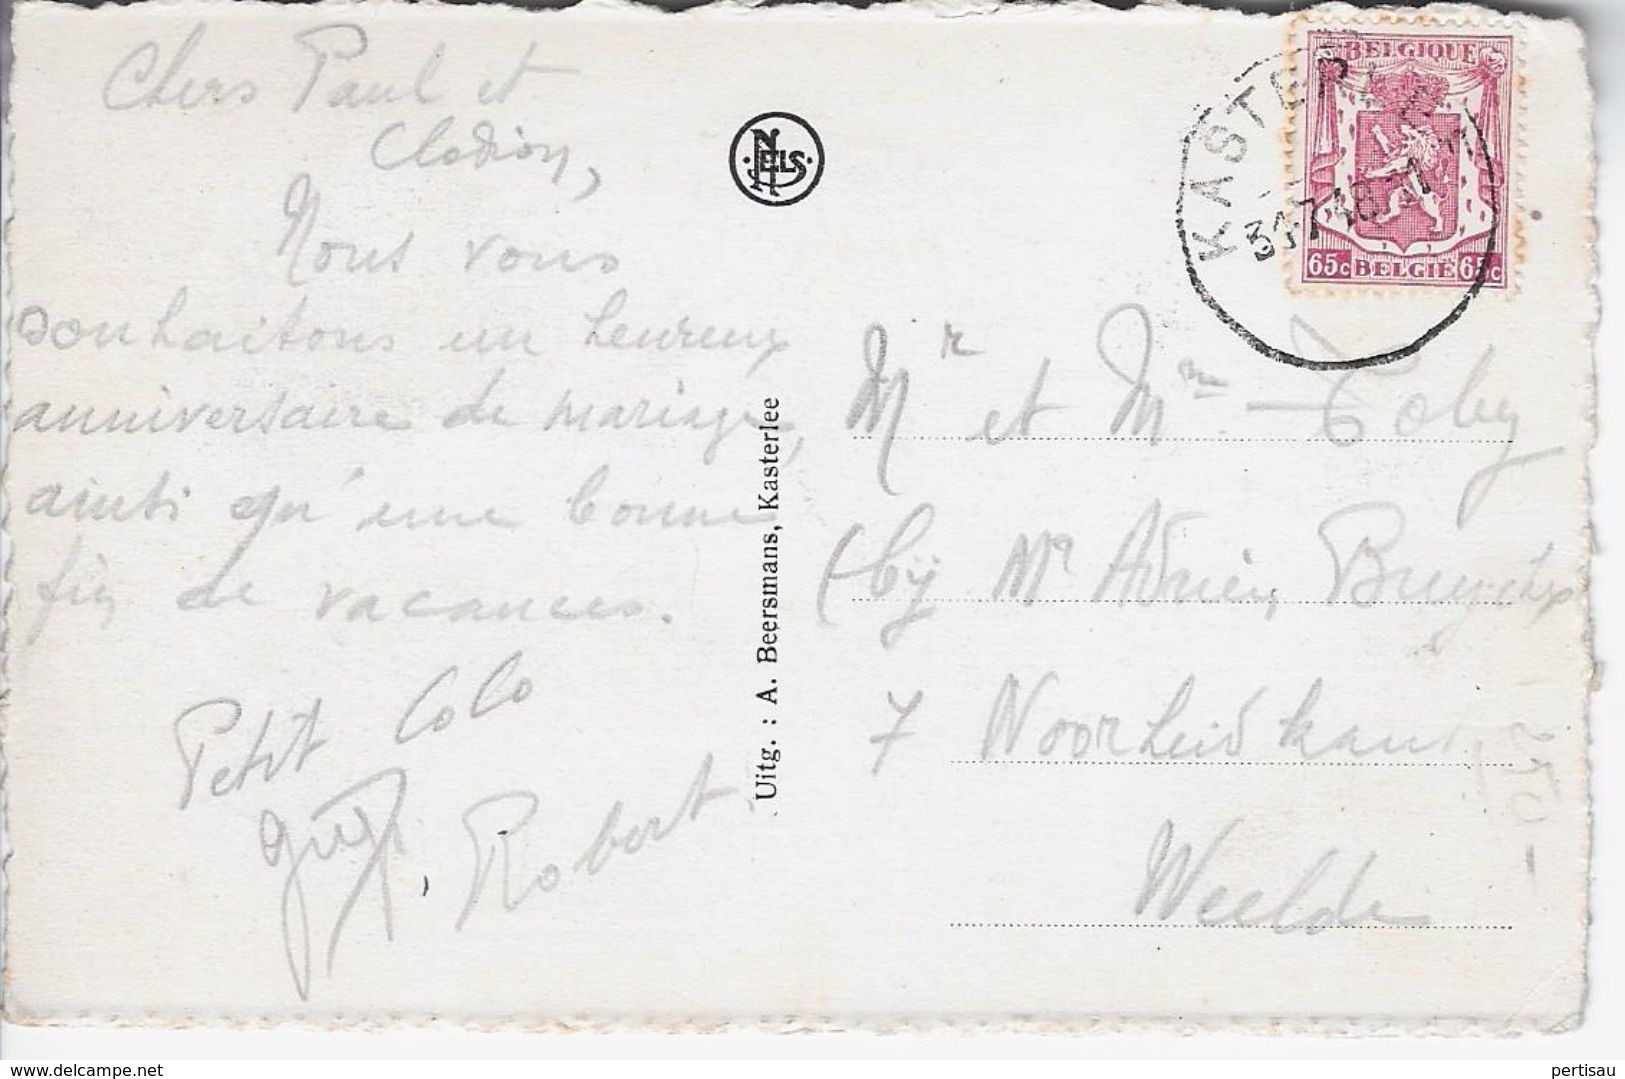 Chers Paul et
Clodion,
Nous vous
souhaitons un heureux
anniversaire de mariage,
ainsi qu'une bonne
fin de vacances.
Petit Colo
Robert
NELS
Uitg. : A. Beersmans, Kasterlee
BELGIQUE
65c BELGIE 65c
KASTERLEE
Mr et Mr Toby
(bij Mr Adrien
7 Noorheidkant
Weelde
www.delcampe.net
pertisau